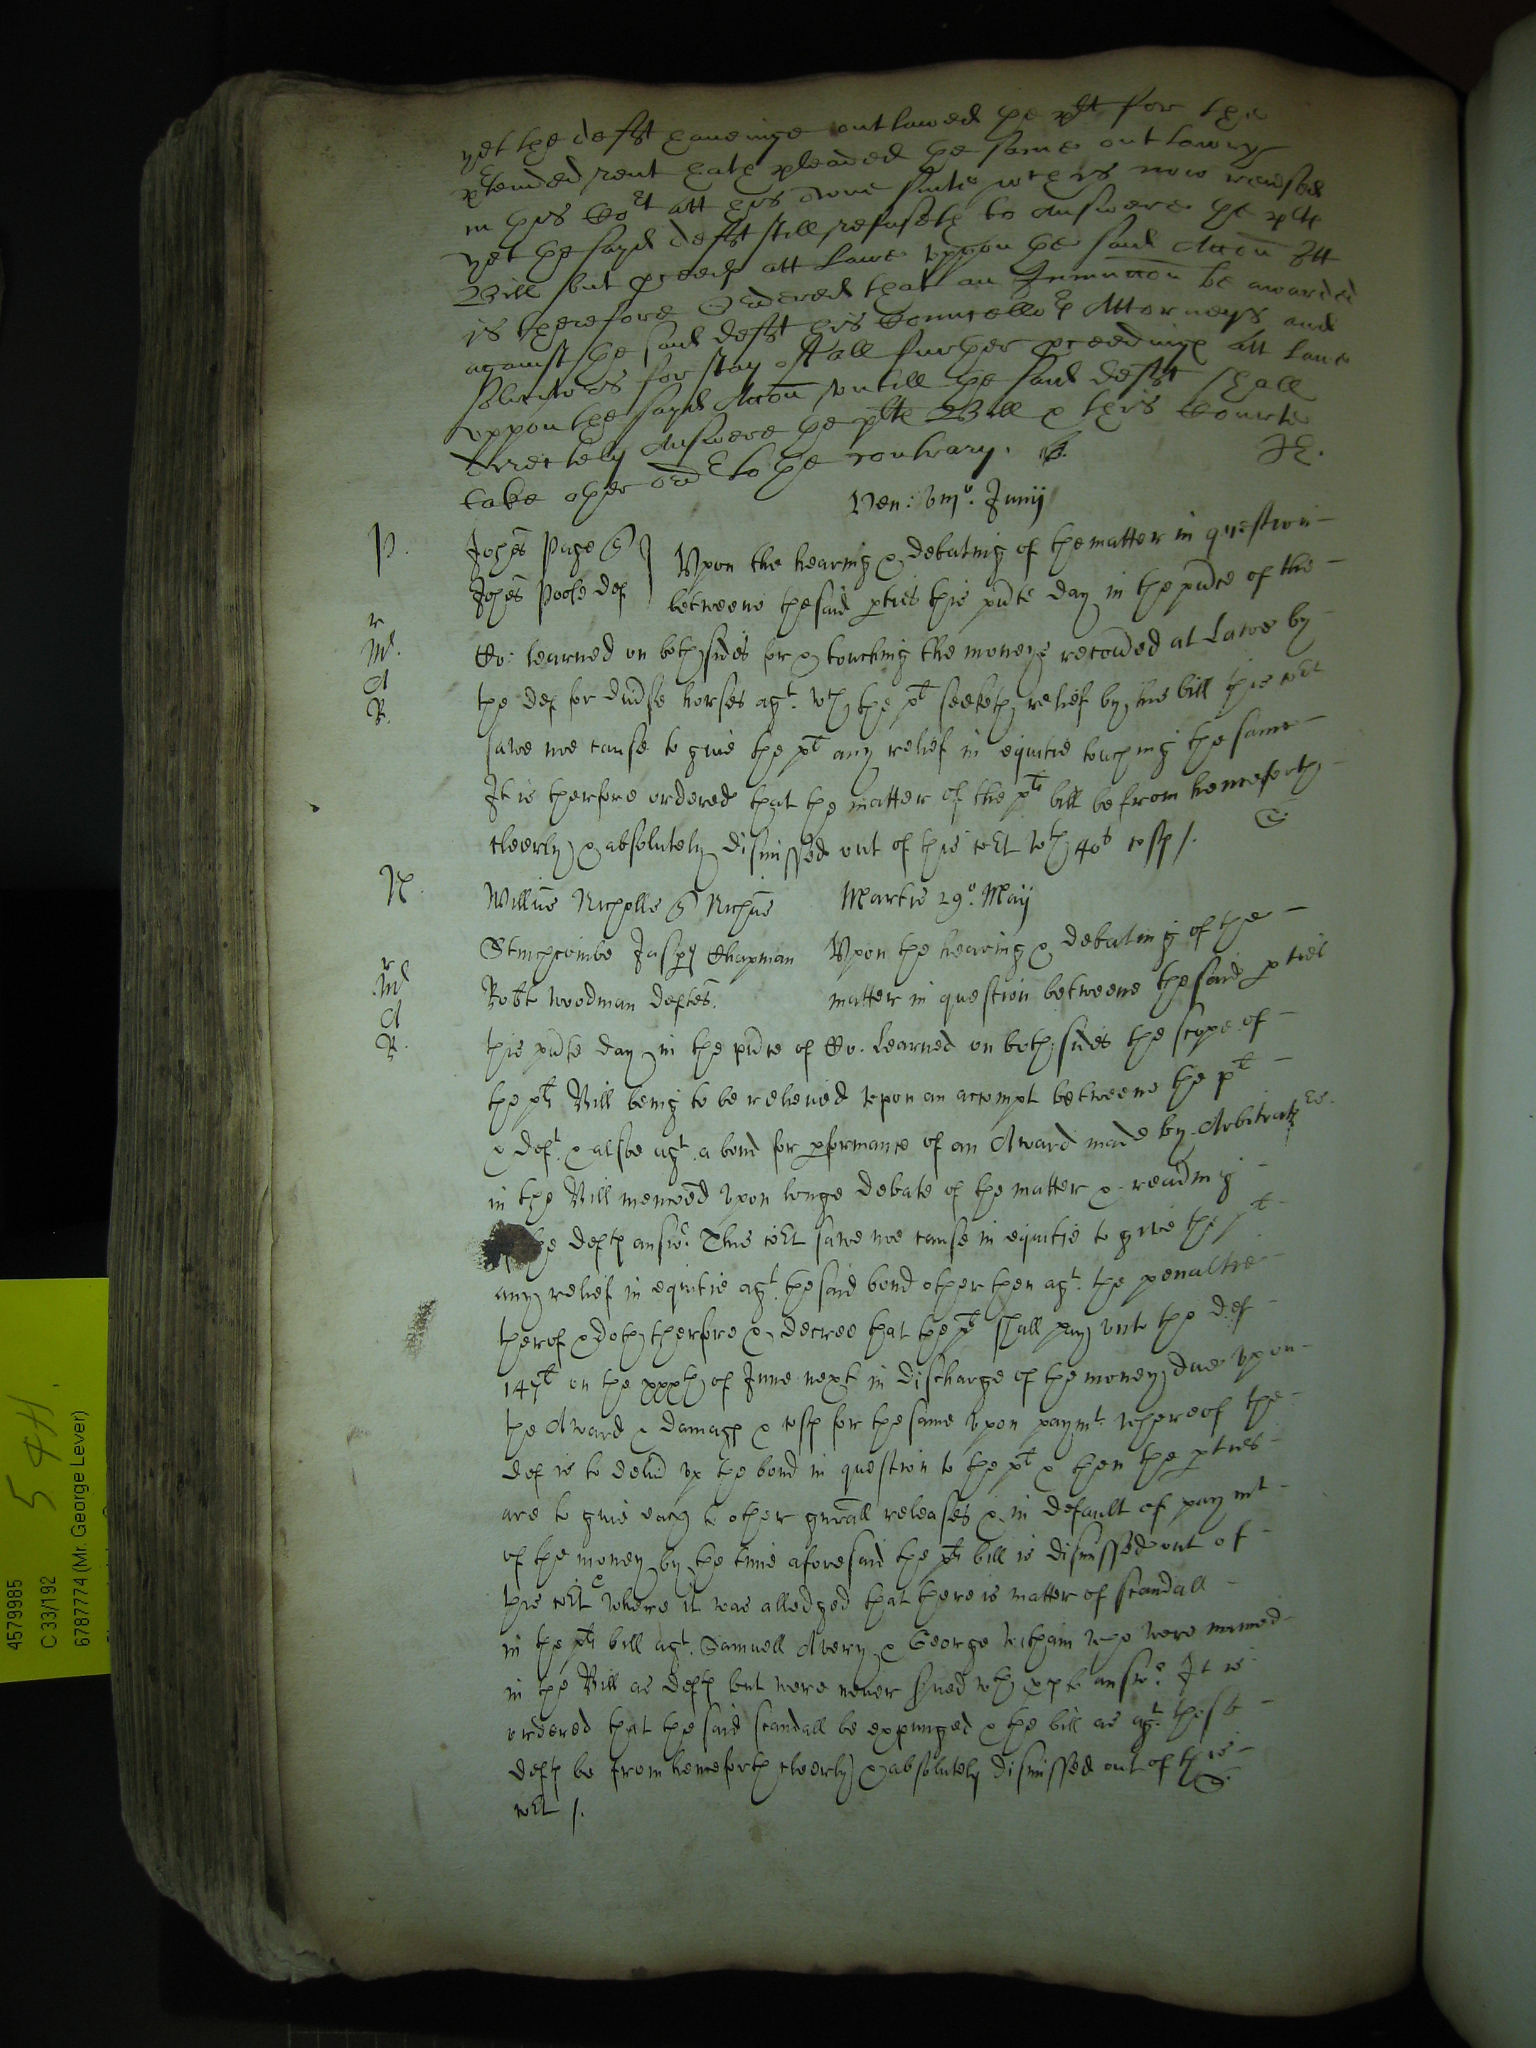 yet the defft haveinge outlawed the plt for the
ptended rent hath pleaded the same outlawry
in this Cort att his owne suite wch is now reversed
yet the sayd defft still refuseth to answere the plts
Bill but pceeds att Lawe uppon the said Accon Itt
is therefore Ordered that an Iniunccon be awarded
against the said defft his Councellors Attorneys and
Solicitors for stay of all further pceedings att Lawe
uppon the sayd Accon untill the said defft shall
directly Answere the plts Bill & this Courte
take other order to the contrary.
Ven: viijo. Junij
P.
Johes Page q
Johes Poole def
Upon the hearing & debating of the matter in question
betweene the said pties this pnte day in the pnce of the
Co: learned on both sides for & touching the moneys recovred at Lawe by
the def for divse horses agt. wch the plt seeketh relief by his bill this Cort
sawe noe cause to give the plt any relief in equitie touching the same
It is therfore ordered that the matter of the plts bill be from henceforth
cleerly & absolutely dismissed out of this Cort wth 40s costs /.
N.
Willus Nicholls q Richus
Stinchcombe Jasper Chapman
Robt Woodman deftes.
Martis 29o. Maij
Upon the hearing & debating of the
matter in question betweene the said pties
this pnte day in the pnce of Co. learned on both sides the scope of
the plts Bill being to be relieved upon an accompt betweene the plt
& deft. & alsoe agt. a bond for pformance of an Award made by Arbitrators
in the Bill menconed Upon longe debate of the matter & reading
the defts answer. This Cort sawe noe cause in equitie to give the plt
any relief in equitie agt. the said bond other then agt. the penaltie
therof & doth therfore & decree that the plt shall pay unto the def
147l on the xxxth of June next in discharge of the money due upon
the Award & damages & costs for the same upon paymt. whereof the
def is to delivr up the bond in question to the plt & then the pties
are to give each to other genrall releases & in default of paymt
of the money by the time aforesaid the plts bill is dismissed out of
this Cort where it was alledged that there is matter of scandall
in the plts bill agt. Samuell Avery & George Witham who were named
in the Bill as defts but were never served wth pces to answer It is
ordered that the said scandall be expunged & the bill as agt. those
defts be from henceforth cleerly & absolutely dismissed out of this
Cort /.
4579985
C 33/192
6787774 (Mr. George Lever)